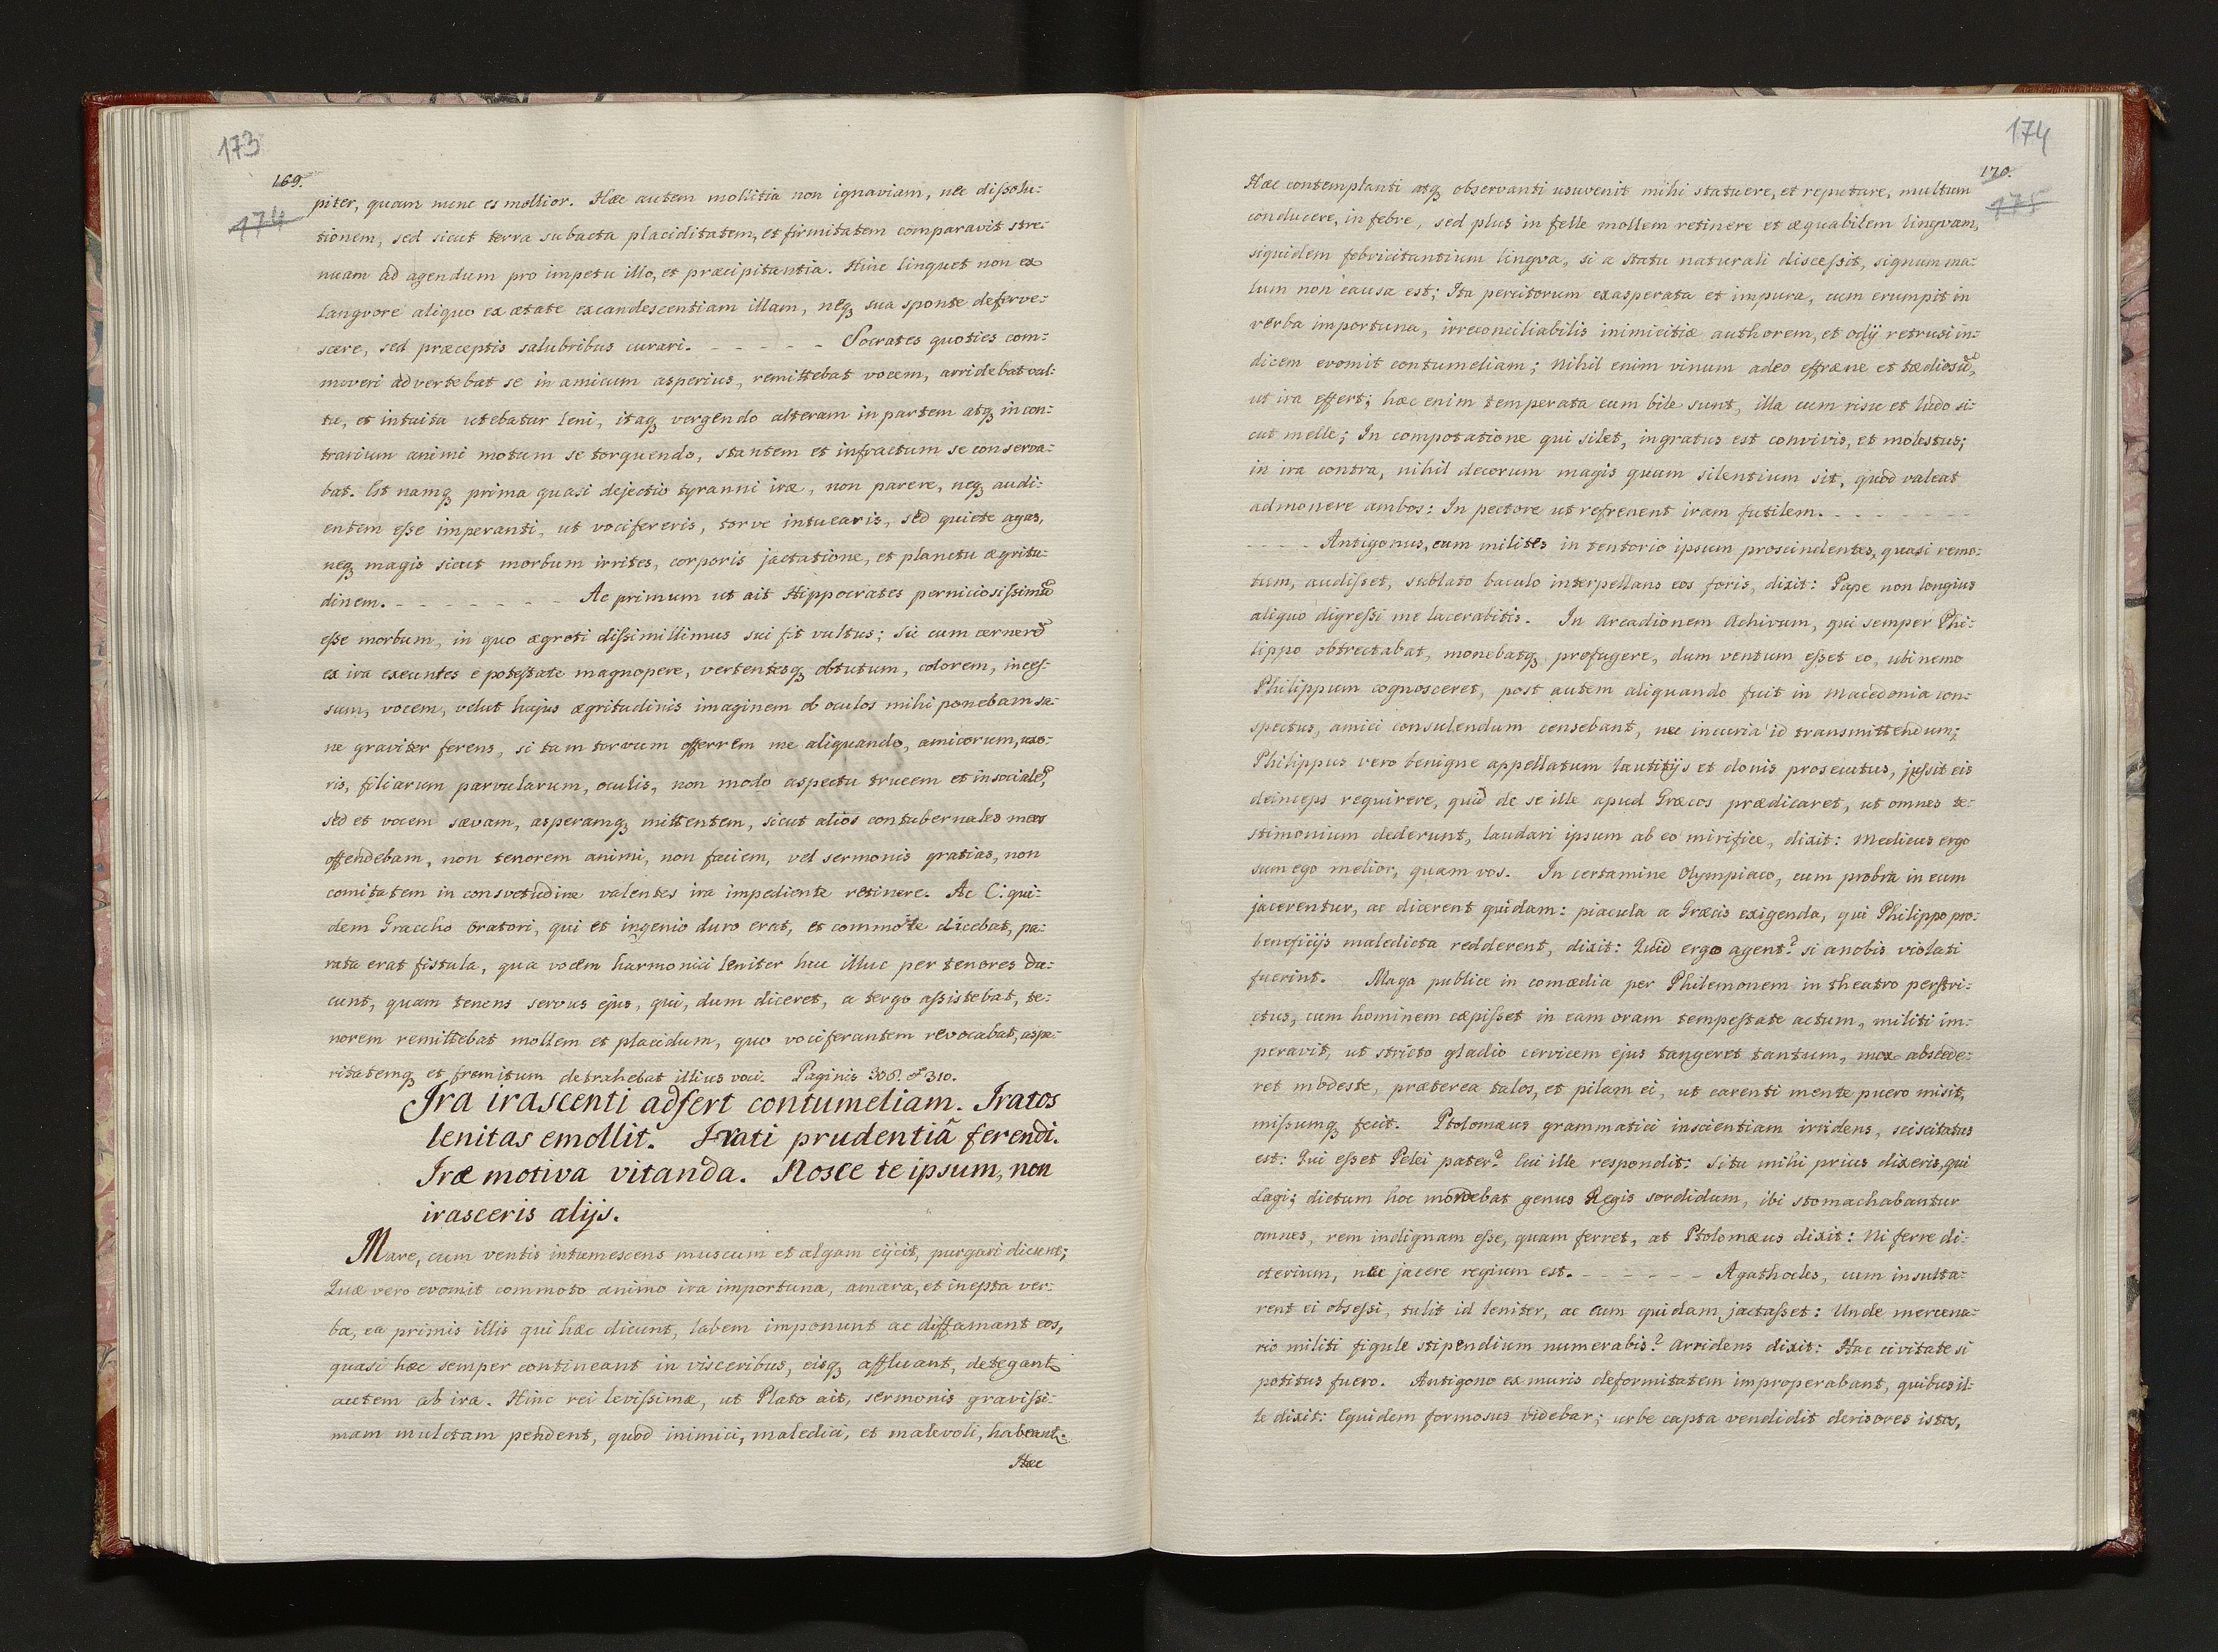 173
169.
174
piter, quam nunc es mollior. Hæc autem mollitia non ignaviam, nec dissolu:
tionem, sed sicut terra subacta placiditatem, et firmitatem comparavit stre:
nuam ad agendum pro impetu illo, et præcipitantia. Hinc linquet non ex
Langvore aliquo ex ætate excandescentiam illam, neq sua sponte deferve:
scere, sed præceptis salubribus curari. - - - - - Socrates quoties com:
moveri advertebat se in amicum asperius, remittebat vocem, arridebat vul:
tu, et intuitu utebatur leni, itaq vergendo alteram in partem atq in con:
trarium animi motum se torquendo, stantem et infractum se conserva:
bat. Est namq prima quasi dejectio tyranni iræ, non parere, neq audi:
entem esse imperanti, ut vocifereris, torve intuearis, sed quiete agas,
neq magis sicut morbum irrites, corporis jactatione, et planctu ægritu:
dinem. - - - - - - - Ac primum ut ait Hippocrates perniciosissimũ
esse morbum, in quo ægroti dissimillimus sui fit vultus; Sic cum cernerẽ
ex ira exeuntes e potestate magnopere, vertentesq obtutum, colorem, inces:
sum, vocem, velut hujus ægritudinis imaginem ob oculos mihi ponebam sa:
ne graviter ferens, si tam torvum offerrem me aliquando, amicorum, uxo:
ris, filiarum parvularum, oculis, non modo aspectu trucem et insocialẽ,
sed et vocem sævam, asperamq mittentem, sicut alios contubernales meos
offendebam, non tenorem animi, non faciem, vel sermonis gratias, non
comitatem in consvetudine valentes ira impediente retinere. Ac C: qui:
dem Graccho Oratori, qui et ingenio duro erat, et commote dicebat, pa:
rata erat fistula, qua vocem harmonici leniter huc illuc per tenores du:
cunt, quam tenens servus ejus, qui, dum diceret, a tergo assistebat, te:
norem remittebat mollem et placidum, quo vociferantem revocabat, aspe:
ritatemq et fremitum detrahebat illius voci. Paginis 308. et 310.
Ira irascenti adfert contumeliam. Iratos
lenitas emollit. Irati prudentiâ ferendi.
Iræ motiva vitanda. Nosce te ipsum, non
irasceris alijs.
Mare, cum ventis intumescens muscum et algam ejicit, purgari dicunt;
Quæ vero evomit commoto animo ira importuna, amara, et inepta ver:
ba, ea primis illis qui hæc dicunt, labem imponunt ac diffamant eos,
quasi hæc semper contineant in visceribus, eisq affluant, detegant
autem ab ira. Hinc rei levissimæ, ut Plato ait, sermonis gravissi:
mam mulctam pendent, quod inimici, maledici, et malevoli, habeant.
Hæc
174
170.
175
Hæc contemplanti atq observanti usuvenit mihi statuere, et reputare, multum
conducere, in febre, sed plus in felle mollem retinere et æquabilem lingvam,
siquidem febricitantium lingva, si a statu naturali discessit, signum ma:
lum non causa est; Ita percitorum exasperata et impura, cum erumpit in
verba importuna, irreconciliabilis inimicitiæ authorem, et odij retrusi in:
dicem evomit contumeliam; nihil enim vinum adeo effræne et tædiosũ,
ut ira effert; hæc enim temperata cum bile sunt, illa cum risu et ludo si:
cut melle; In compotatione qui silet, ingratus est convivis, et molestus;
in ira contra, nihil decorum magis quam silentium sit, quod valeat
admonere ambos: In pectore ut refrenent iram futilem. - - - - - - -
- - - - Antigonus, cum milites in tentorio ipsum proscindentes, quasi remo:
tum, audisset, sublato baculo interpellans eos foris, dixit: Pape non longius
aliquo digressi me lacerabitis. In Arcadionem Achivum, qui semper Phi:
lippo obtrectabat, monebatq profugere, dum ventum esset eo, ubi nemo
Philippum cognosceret, post autem aliquando fuit in Macedonia con:
spectus, amici consulendum censebant, nec incuriâ id transmittendum;
Philippus vero benigne appellatum lautitijs et donis prosecutus, jussit eis
deinceps requirere, quid de se ille apud Græcos prædicaret, ut omnes te:
stimonium dederunt, laudari ipsum ab eo mirifice, dixit: Medicus ergo
sum ego melior, quam vos. In certamine Olympiaco, cum probra in eum
jacerentur, ac dicerent quidam: piacula a Græcis exigenda, qui Philippo pro:
beneficijs maledicta redderent, dixit: Quid ergo agent? si a nobis violati
fuerint. Maga publice in comædia per Philemonem in theatro perstri:
ctus, cum hominem cæpisset in eam oram tempestate actum, militi im:
peravit, ut stricto gladio cervicem ejus tangeret tantum, mox abscede:
ret modeste, præterea talos, et pilam ei, ut carenti mente puero misit,
missumq fecit. Ptolomæus grammatici inscientiam irridens, sciscitatus
est: Qui esset Pelei pater? Cui ille respondit: Si tu mihi prius dixeris, qui
Lagi; dictum hoc mordebat genus Regis sordidum, ibi stomachabantur
omnes, rem indignam esse, quam ferret, at Ptolomæus dixit: Ni ferre di:
cterium, nec jacere regium est. - - - - - - Agathocles, cum insulta:
rent ei obsessi, tulit id leniter, ac cum quidam jactasset: Unde mercena:
rio militi figule stipendium numerabis? Arridens dixit: Hac civitate si
potitus fuero. Antigono ex muris deformitatem improperabant, quibus il:
le dixit: Equidem formosus videbar; urbe capta vendidit derisores istos,